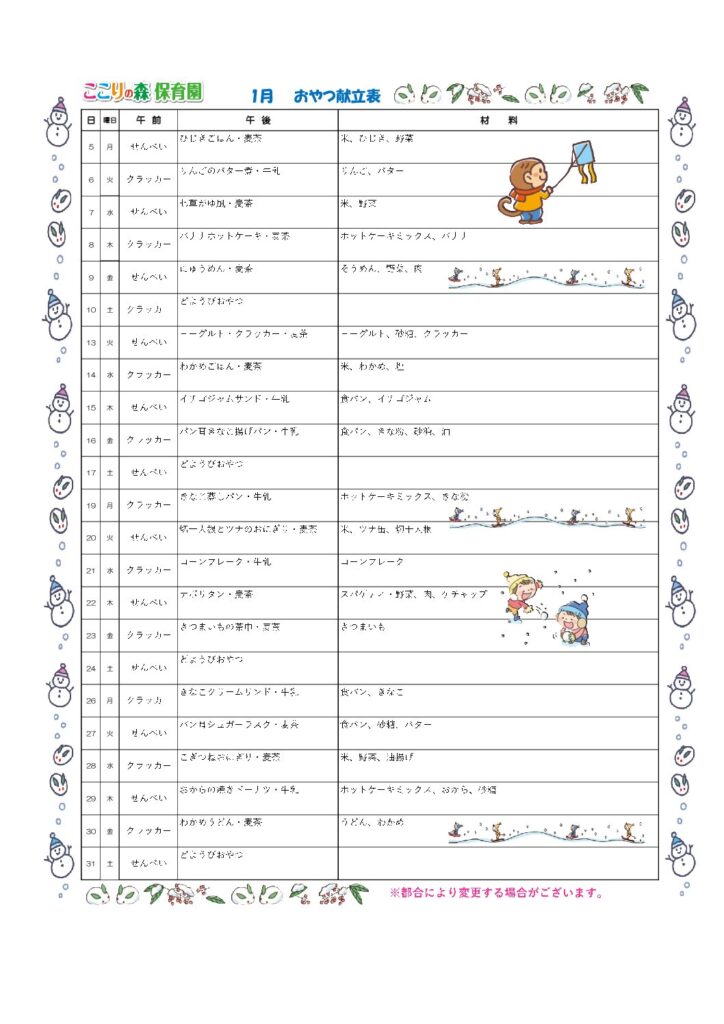 ここりの森 保育園 1月 おやつ献立表
日 曜日 午前 午後 材料
5 月 せんべい ひじきごはん・麦茶 米、ひじき、野菜
6 火 クラッカー りんごのバター煮・牛乳 りんご、バター
7 水 せんべい 七草がゆ風・麦茶 米、野菜
8 木 クラッカー バナナホットケーキ・麦茶 ホットケーキミックス、バナナ
9 金 せんべい にゅうめん・麦茶 そうめん、野菜、肉
10 土 クラッカー どようびおやつ
13 火 せんべい ヨーグルト・クラッカー・麦茶 ヨーグルト、砂糖、クラッカー
14 水 クラッカー わかめごはん・麦茶 米、わかめ、塩
15 木 せんべい イチゴジャムサンド・牛乳 食パン、イチゴジャム
16 金 クラッカー パン耳きなこ揚げパン・牛乳 食パン、きな粉、砂糖、油
17 土 せんべい どようびおやつ
19 月 クラッカー きなこ蒸しパン・牛乳 ホットケーキミックス、きな粉
20 火 せんべい 切干大根とツナのおにぎり・麦茶 米、ツナ缶、切干大根
21 水 クラッカー コーンフレーク・牛乳 コーンフレーク
22 木 せんべい ナポリタン・麦茶 スパゲティ・野菜、肉、ケチャップ
23 金 クラッカー さつまいもの茶巾・麦茶 さつまいも
24 土 せんべい どようびおやつ
26 月 クラッカー きなこクリームサンド・牛乳 食パン、きなこ
27 火 せんべい パン耳シュガーラスク・麦茶 食パン、砂糖、バター
28 水 クラッカー こぎつねおにぎり・麦茶 米、野菜、油揚げ
29 木 せんべい おからの焼きドーナツ・牛乳 ホットケーキミックス、おから、砂糖
30 金 クラッカー わかめうどん・麦茶 うどん、わかめ
31 土 せんべい どようびおやつ
※都合により変更する場合がございます。